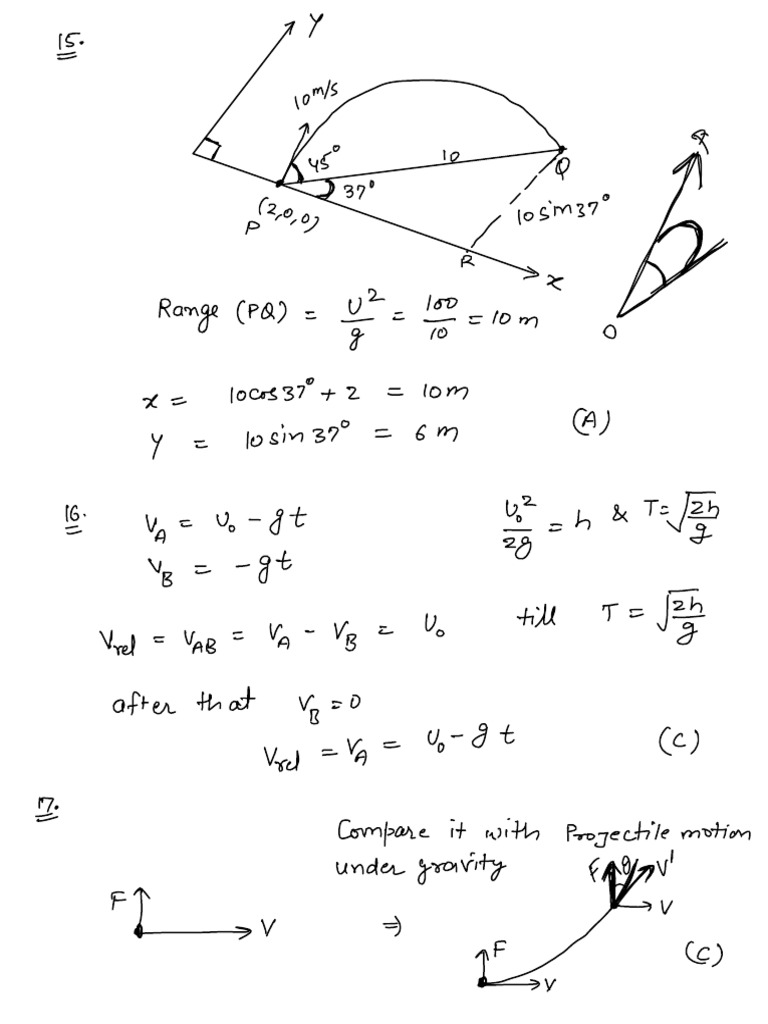 15.
Y
10 m/s
45°
10
Q
37°
(2,0,0)
P
10 sin 37°
R
x
O
Range (PQ) = U²/g = 100/10 = 10 m
x = 10 cos 37° + 2 = 10 m
Y = 10 sin 37° = 6 m (A)
16. V_A = U₀ - gt
U₀²/2g = h & T = √(2h/g)
V_B = -gt
V_rel = V_AB = V_A - V_B = U₀ till T = √(2h/g)
after that V_B = 0
V_rel = V_A = U₀ - gt (C)
17.
Compare it with Projectile motion
under gravity
F θ V'
V
F
V
⇒
F
V
(C)